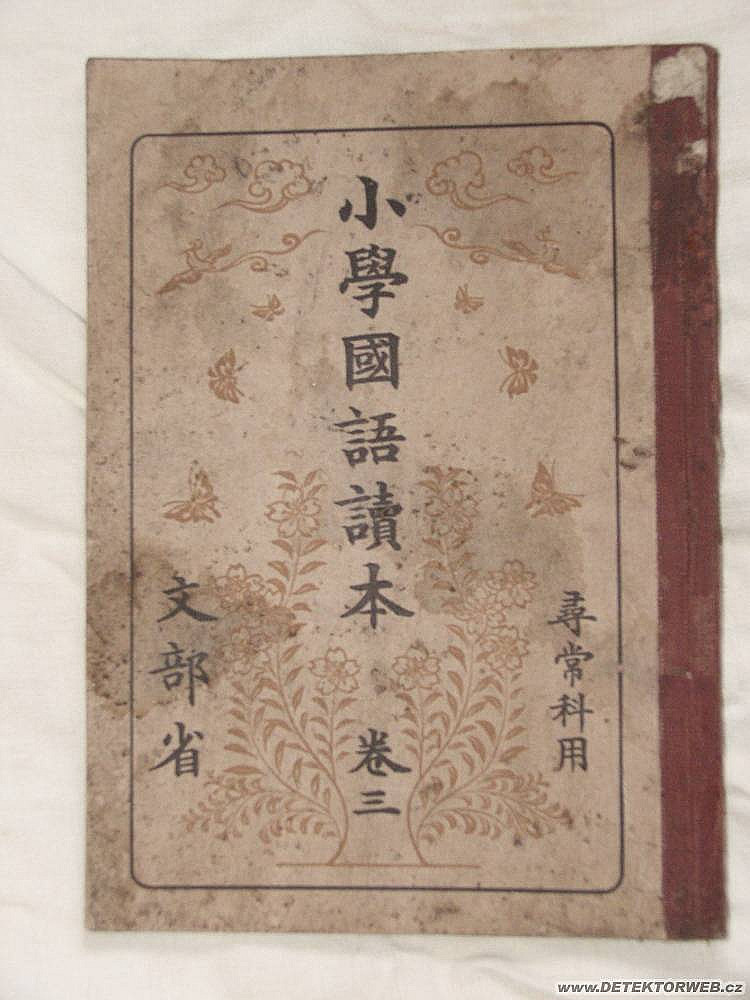 尋常科用
小學國語讀本 卷三
文部省
www.DETEKTORWEB.cz